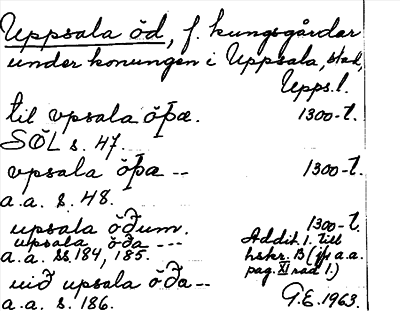 Uppsala öd, f. kungsgårdar
under konungen i Uppsala, stad,
Upps. l.
til vpsala öþæ. 1300-t.
SÖL s. 47.
vpsala öþa -- 1300-t.
a.a. s. 48.
upsala öðum. 1300-t.
upsala öða --- Addit. 1. till
a.a. ss. 184, 185. hskr. B (jfr a.a.
pag. XI rad 1.)
uið upsala öða --
a.a. s. 186. G.E. 1963.